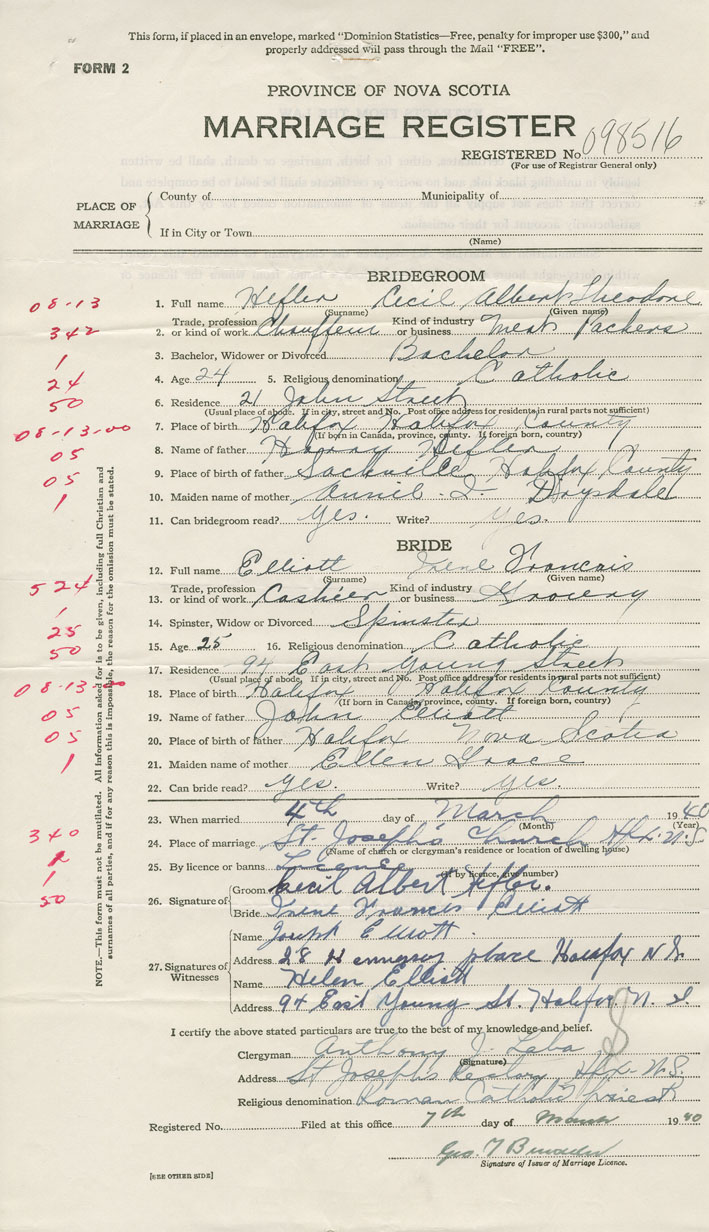 This form, if placed in an envelope, marked "Dominion Statistics—Free, penalty for improper use $300," and
properly addressed will pass through the Mail "FREE".
FORM 2
PROVINCE OF NOVA SCOTIA
MARRIAGE REGISTER
REGISTERED No. 098516
(For use of Registrar General only)
PLACE OF MARRIAGE
County of Municipality of
If in City or Town
(Name)
BRIDEGROOM
08-13
1. Full name Hefler Cecil Albert Theodore
(Surname) (Given name)
342
2. Trade, profession or kind of work Chauffeur Kind of industry or business Meat Packers
1
3. Bachelor, Widower or Divorced Bachelor
24
4. Age 24 5. Religious denomination Catholic
50
6. Residence 21 John Street
(Usual place of abode. If in city, street and No. Post office address for residents in rural parts not sufficient)
08-13-00
7. Place of birth Halifax Halifax County
(If born in Canada, province, county. If foreign born, country)
05
8. Name of father Harry Hefler
05
9. Place of birth of father Sackville Halifax County
1
10. Maiden name of mother Annie - I - Drysdale
11. Can bridegroom read? Yes. Write? Yes.
BRIDE
12. Full name Elliott Irene Francais
(Surname) (Given name)
524
13. Trade, profession or kind of work Cashier Kind of industry or business Grocery
1
14. Spinster, Widow or Divorced Spinster
25
15. Age 25 16. Religious denomination Catholic
50
17. Residence 94 East Young Street
(Usual place of abode. If in city, street and No. Post office address for residents in rural parts not sufficient)
08-13-00
18. Place of birth Halifax Halifax County
(If born in Canada, province, county. If foreign born, country)
05
19. Name of father John Elliott
05
20. Place of birth of father Halifax Nova Scotia
1
21. Maiden name of mother Ellen Grace
22. Can bride read? Yes. Write? Yes.
23. When married 4th day of March 1940
(Month) (Year)
340
24. Place of marriage St. Joseph's Church Hfx. N.S.
(Name of church or clergyman's residence or location of dwelling house)
25. By licence or banns Licence
(If by licence, give number)
1
50
26. Signature of
Groom Cecil Albert Hefler.
Bride Irene Francis Elliott
27. Signatures of Witnesses
Name Joseph Elliott.
Address 28 Hennessy place Halifax N S.
Name Helen Elliott
Address 94 East Young St. Halifax N. S.
I certify the above stated particulars are true to the best of my knowledge and belief.
Clergyman Anthony J.
(Signature)
Address St Joseph's Rectory Hfx. N.S.
Religious denomination Roman Catholic priest
Registered No. Filed at this office 7th day of March 1940
Geo. T
Signature of Issuer of Marriage Licence.
[SEE OTHER SIDE]
NOTE.—This form must not be mutilated. All information asked for is to be given, including full Christian and
surnames of all parties, and if for any reason this is impossible, the reason for the omission must be stated.